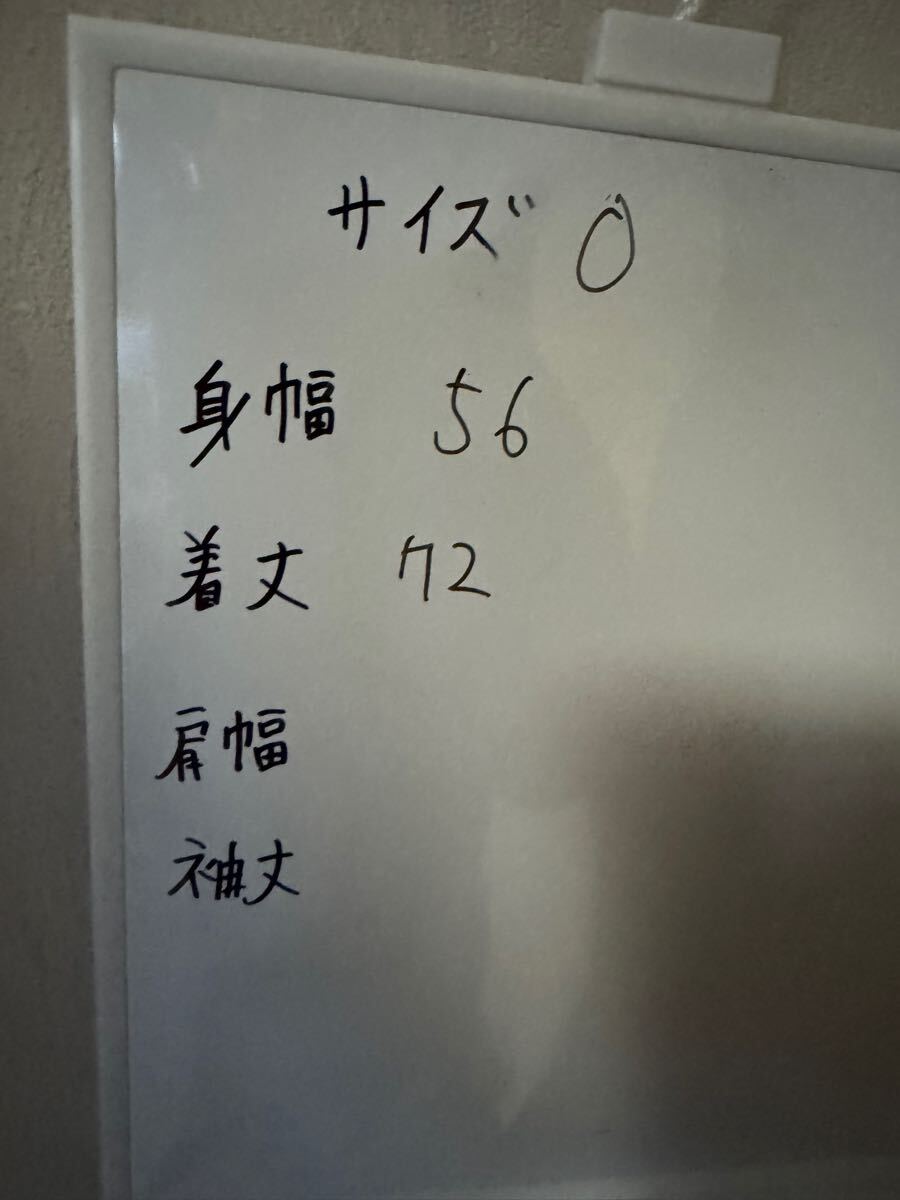 サイズ 0
身幅 56
着丈 72
肩幅
袖丈